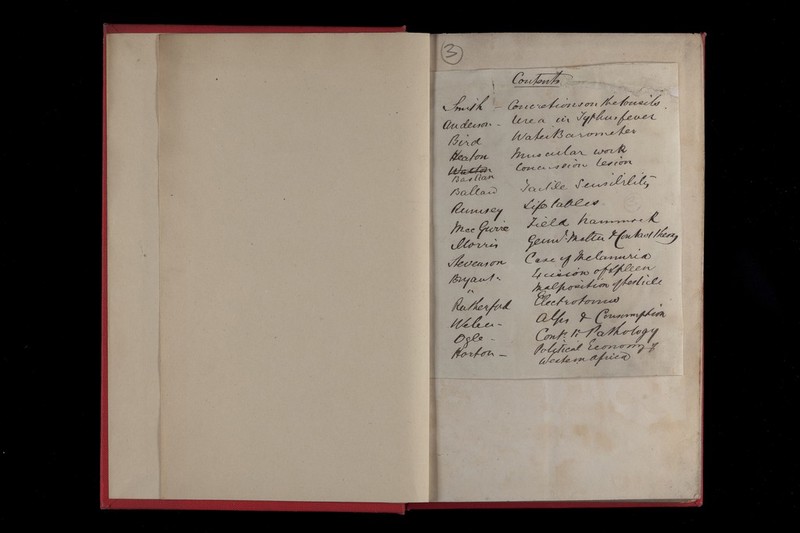 3
Contents
Smith - Concretions on the tonsils.
Anderson - Urea in Typhus fever
Bird Water Barometer
Heaton Muscular work
Waxton
Bastian Concussion lesion
Ballard Tactile Sensibility
Rumsey Life tables
MacGuire Field hammock
Morris Germ. Matter & Contact Theory
Stevenson Case of Melanuria
Bryant Excision of Spleen
" Malposition of testicle
Rutherford Electrotonus
Weber - Alps & Consumption
Ogle - Cont. to Pathology
Horton - Political Economy of
Western Africa